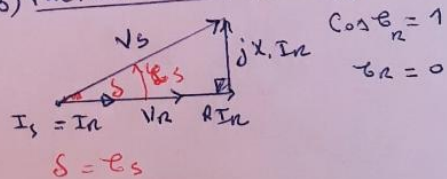 Vs
jX.I_R
Cos φ_R = 1
δ
φ_s
φ_R = 0
I_s = I_R
V_R
R I_R
δ = φ_s